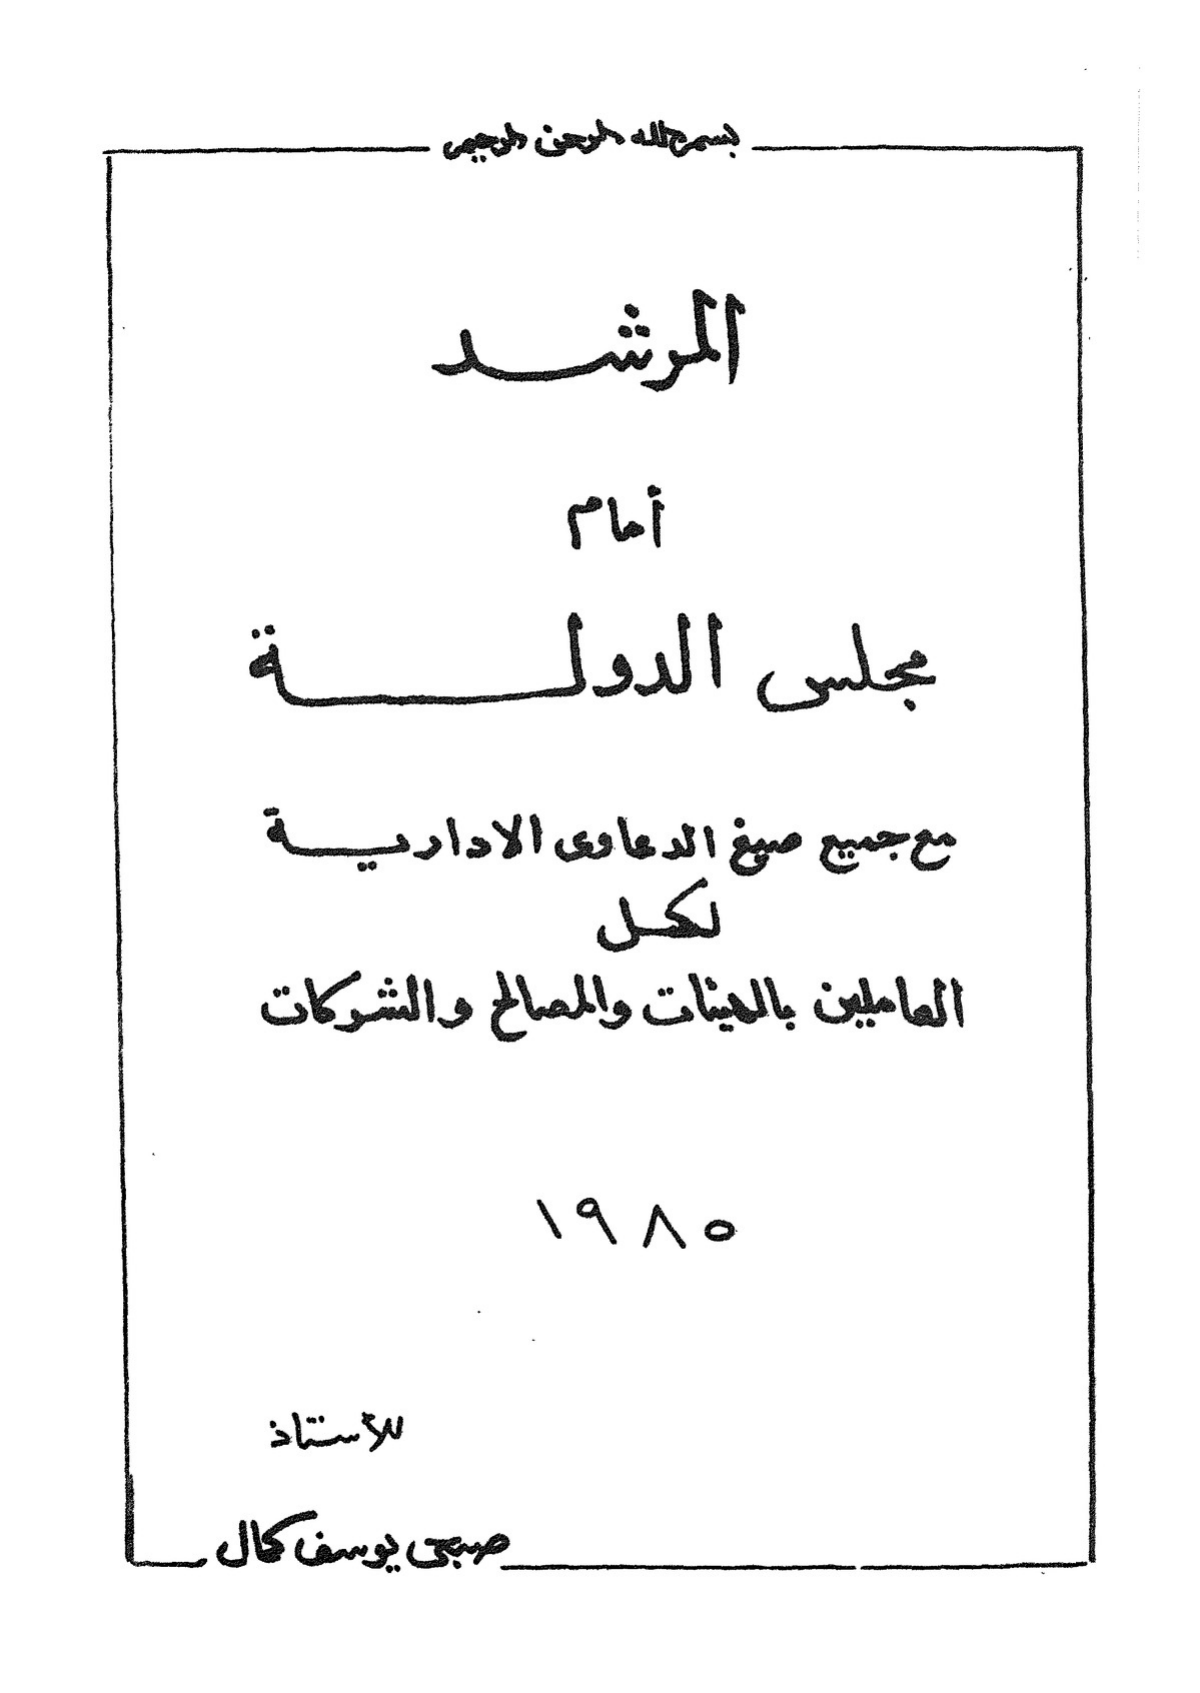 بسم الله الرحمن الرحيم
المرشد
أمام
مجلس الدولة
مع جميع صيغ الدعاوى الادارية
لكل
العاملين بالهيئات والمصالح والشركات
١٩٨٥
للأستاذ
صبحى يوسف كمال